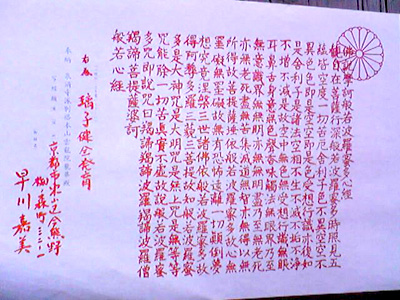 佛説摩訶般若波羅蜜多心経
観自在菩薩行深般若波羅蜜多時照見五
蘊皆空度一切苦厄舎利子色不異空空不
異色色即是空空即是色受想行識亦復如
是舎利子是諸法空相不生不滅不垢不浄
不増不減是故空中無色無受想行識無眼
耳鼻舌身意無色聲香味觸法無眼界乃至
無意識界無無明亦無無明盡乃至無老死
亦無老死盡無苦集滅道無智亦無得以無
所得故菩提薩埵依般若波羅蜜多故心無
罣礙無罣礙故無有恐怖遠離一切顛倒夢
想究竟涅槃三世諸佛依般若波羅蜜多故
得阿耨多羅三藐三菩提故知般若波羅蜜
多是大神咒是大明咒是無上咒是無等等
咒能除一切苦真實不虚故説般若波羅蜜
多咒即説咒曰羯諦羯諦波羅羯諦波羅僧
羯諦菩提薩婆訶
般若心経
右為 璃子健全発育
奉納
京都市東山区今熊野
早川嘉美